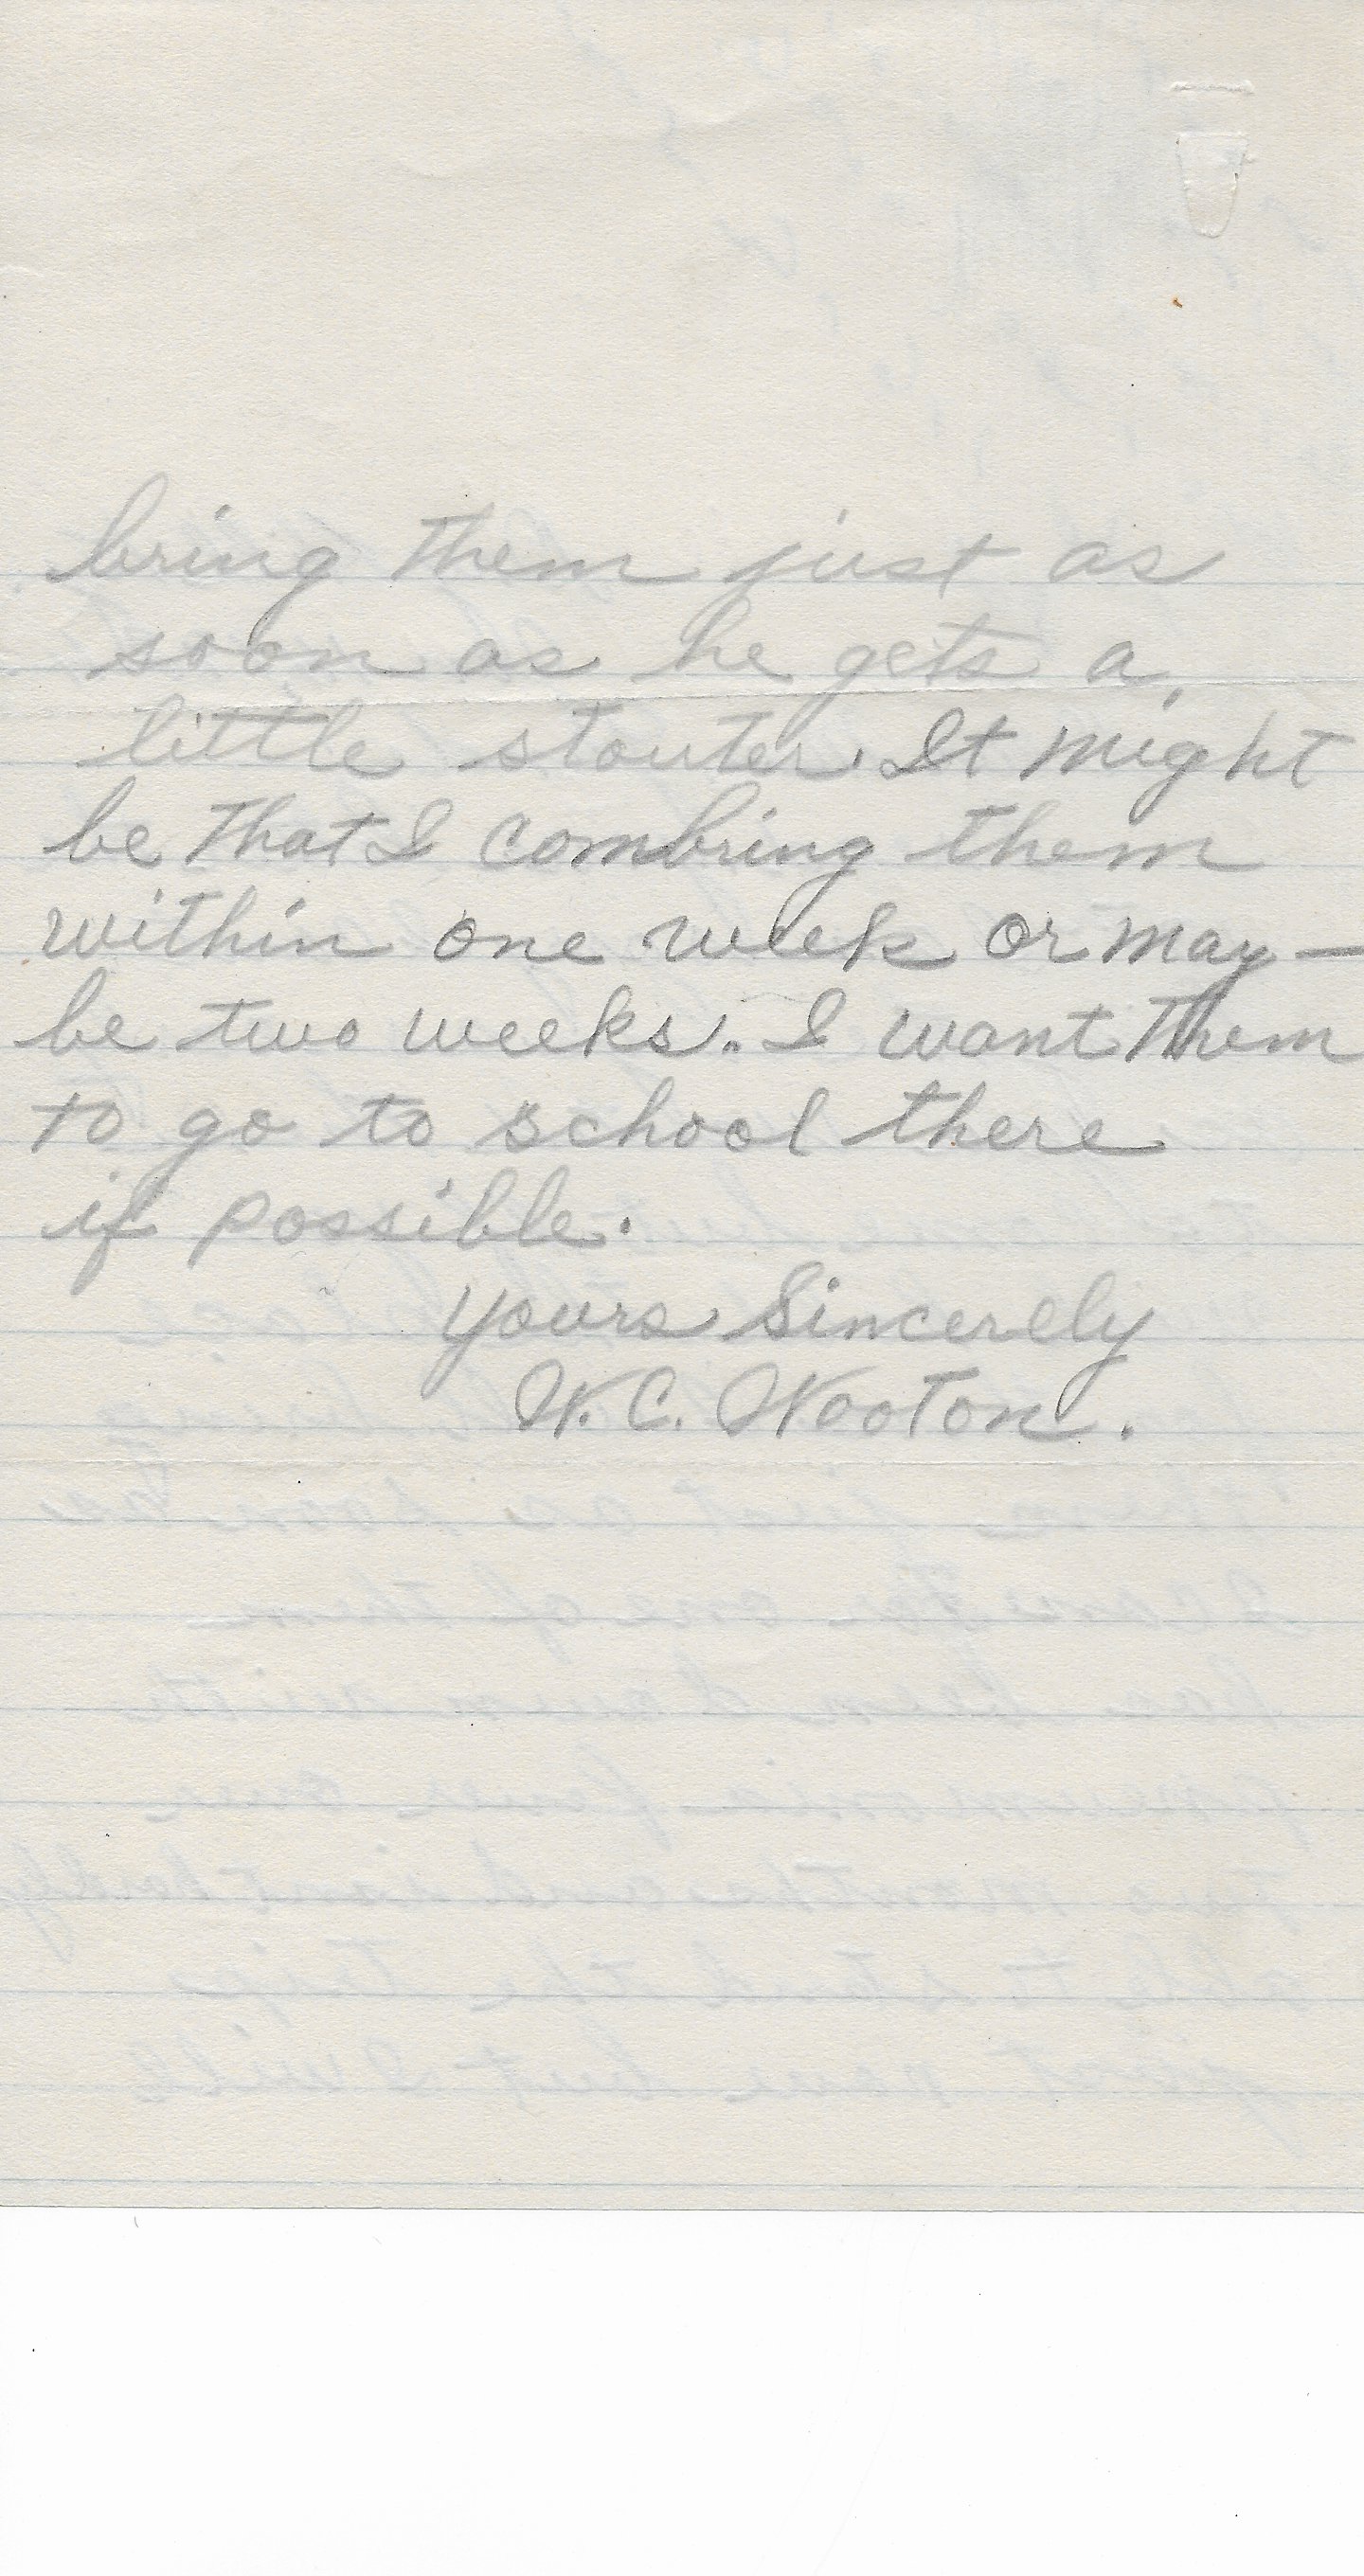 bring them just as
soon as he gets a
little stouter. It might
be that I can bring them
within one week or may—
be two weeks. I want them
to go to school there
if possible.
Yours Sincerely
W. C. Wooton.